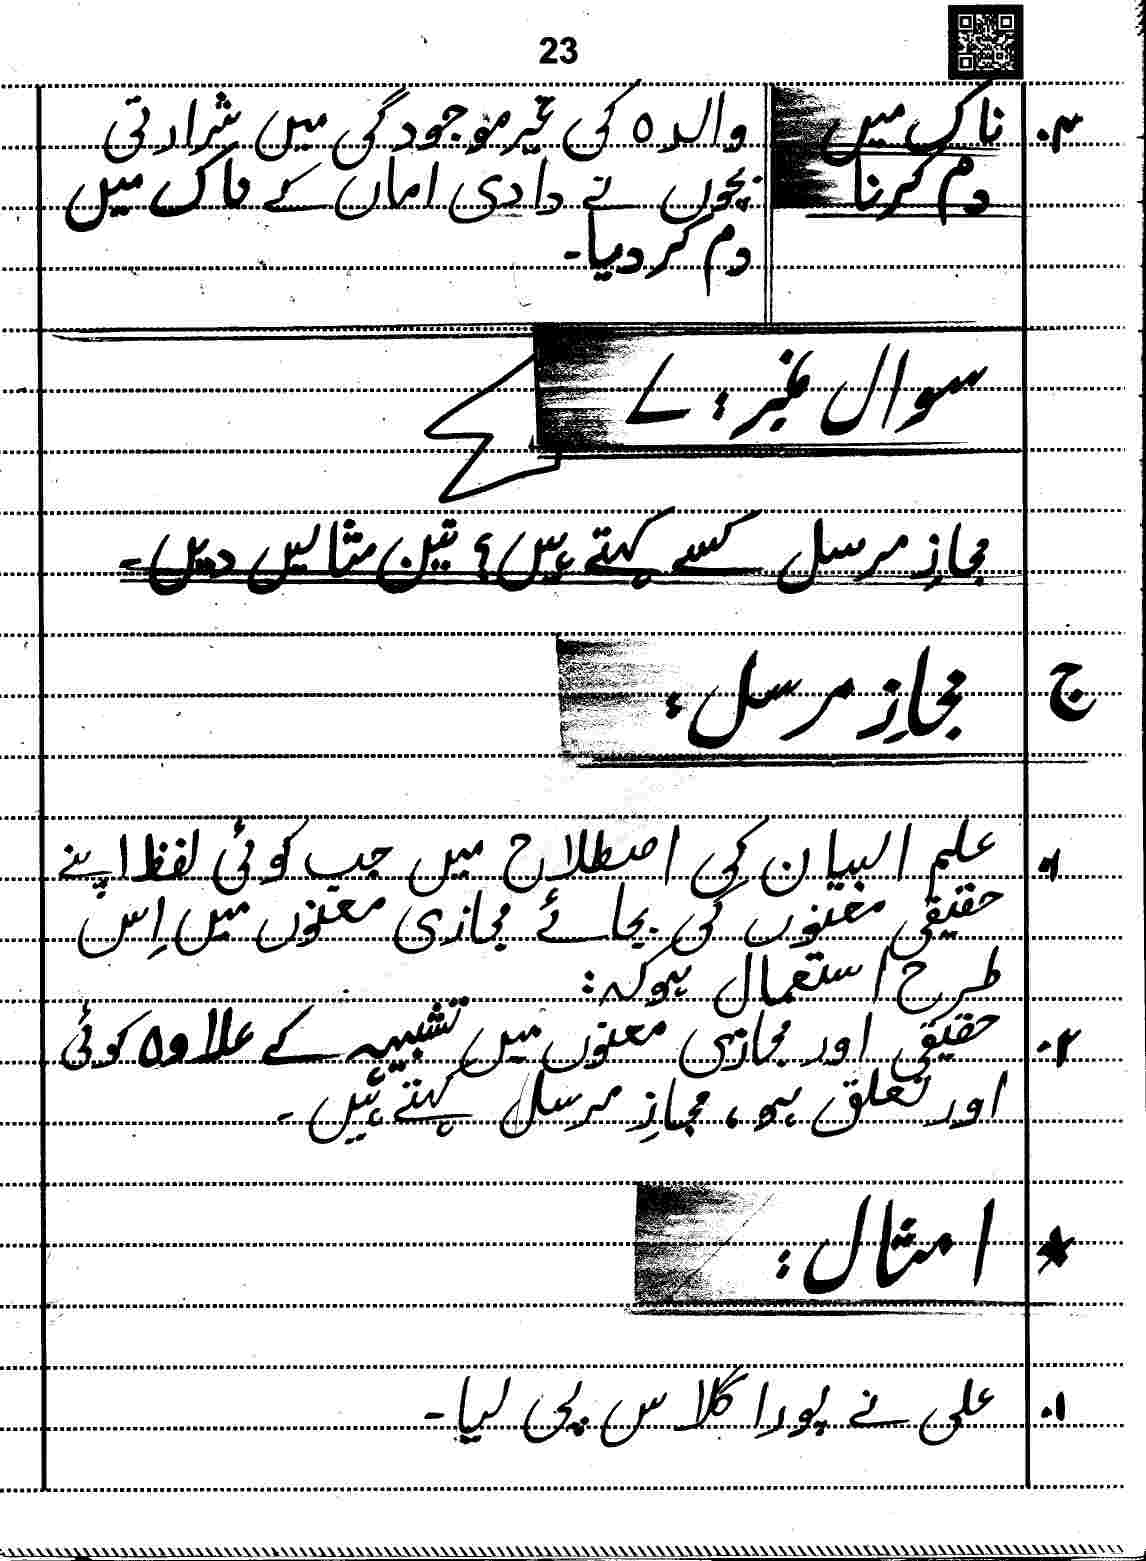 23
۳. ناک میں والدہ کی غیر موجودگی میں شرارتی
دم کرنا بچوں نے دادی اماں کے ناک میں
دم کر دیا۔
سوال نمبر: ۷
مجازِ مرسل کسے کہتے ہیں؟ تین مثالیں دیں۔
ج مجازِ مرسل:
۱. علم البیان کی اصطلاح میں جب کوئی لفظ اپنے
حقیقی معنوں کی بجائے مجازی معنوں میں اِس
طرح استعمال ہو کہ:
۲. حقیقی اور مجازی معنوں میں تشبیہہ کے علاوہ کوئی
اور تعلق ہو، مجازِ مرسل کہتے ہیں۔
امثال:
۱. علی نے پورا گلاس پی لیا۔